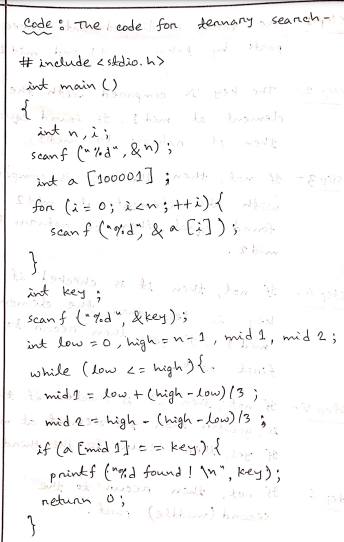 Code : The code for ternary search,-
# include <stdio.h>
int main ()
{
int n, i ;
scanf ("%d", &n) ;
int a [100001] ;
for (i = 0; i<n ; ++i) {
scanf ("%d", & a [i]) ;
}
int key ;
scanf ("%d", &key) ;
int low = 0, high = n-1, mid 1, mid 2 ;
while (low <= high) {
mid 1 = low + (high - low) /3 ;
mid 2 = high - (high - low) /3 ;
if (a [mid 1] = = key) {
printf ("%d found ! \n", key) ;
return 0 ;
}